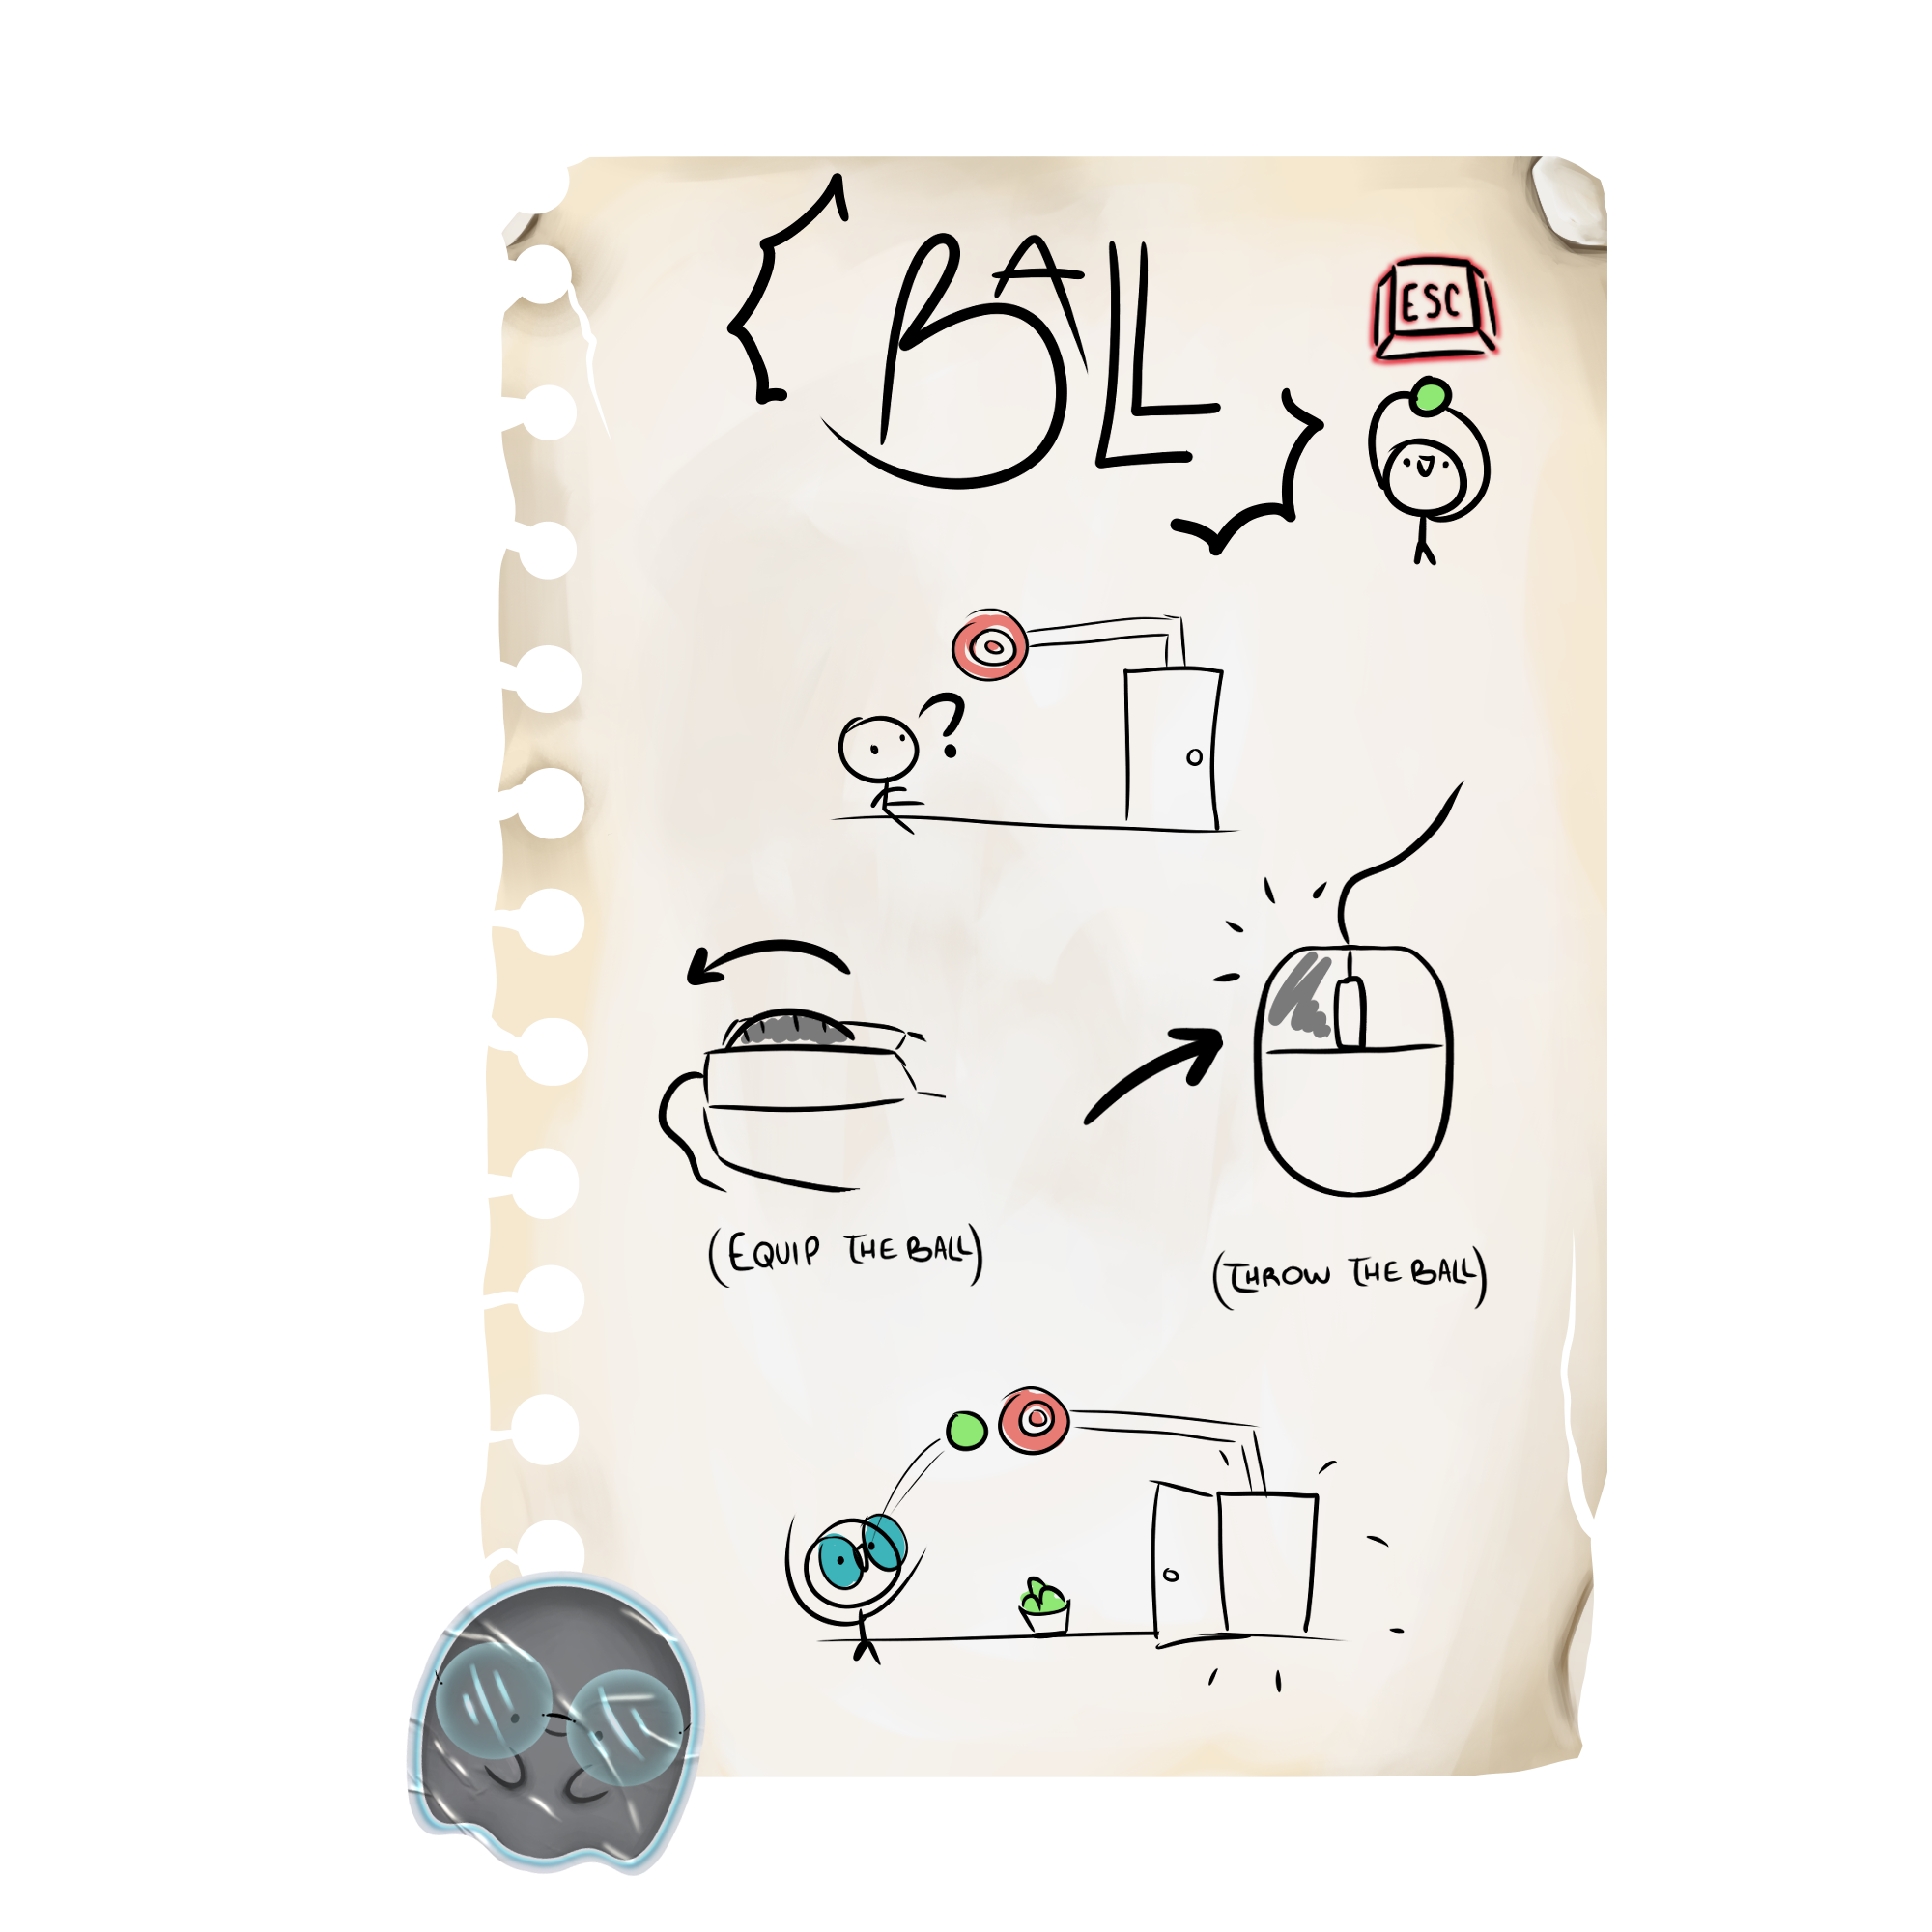 BALL
ESC
?
(EQUIP THE BALL)
(THROW THE BALL)